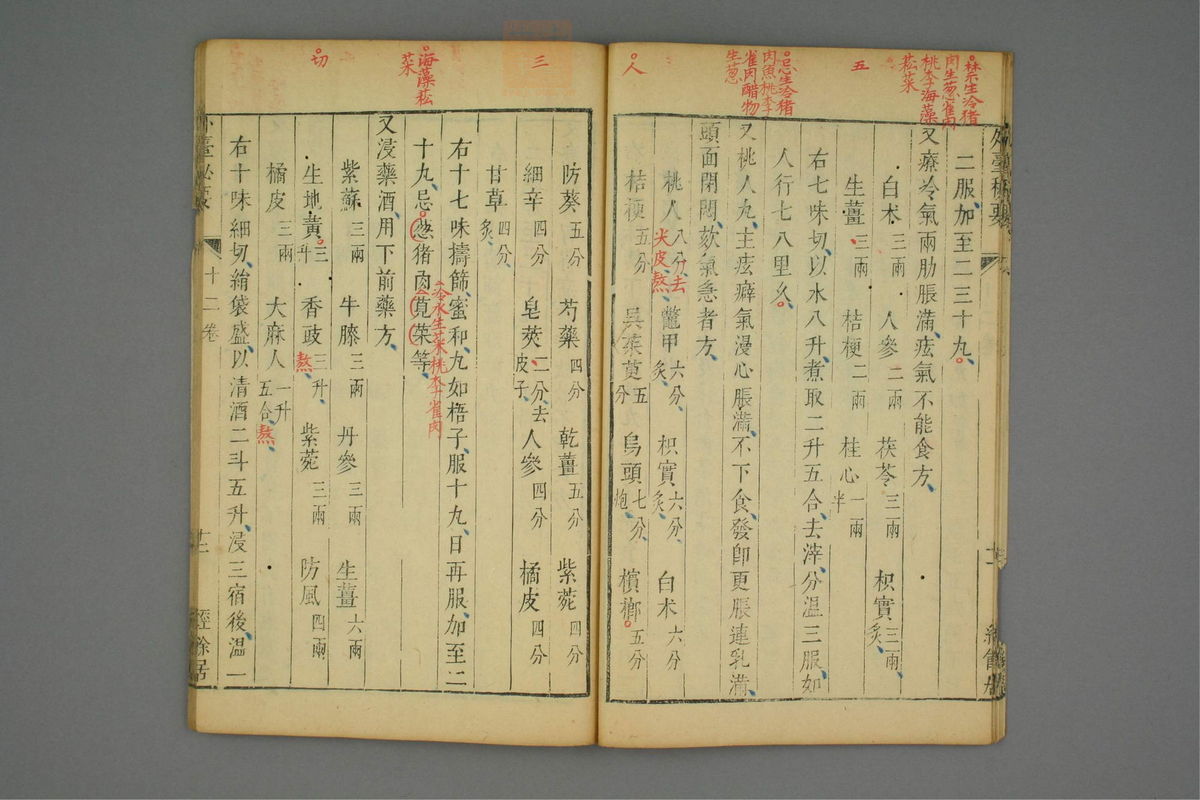 禁生冷猪
肉生葱雀肉
桃李海藻
菘菜
五
忌生冷猪
肉魚桃李
雀肉醋物
生葱
人
二服加至二三十丸
又療冷氣兩肋脹滿痃氣不能食方
白朮三兩 人參二兩 茯苓三兩 枳實三兩炙
生薑三兩 桔梗二兩 桂心一兩半
右七味切以水八升煮取二升五合去滓分溫三服如
人行七八里久
又桃人丸主痃癖氣漫心脹滿不下食發即更脹連乳滿
頭面閉悶欬氣急者方
桃人八分去尖皮熬 鱉甲六分炙 枳實六分炙 白朮六分
桔梗五分 吳茱萸五分 烏頭七分炮 檳榔五分
三
海藻菘
菜
切
防葵五分 芍藥四分 乾薑五分 紫菀四分
細辛四分 皂莢二分去皮子 人參四分 橘皮四分
甘草四分炙
右十七味擣篩蜜和丸如梧子服十丸日再服加至二
十丸忌葱猪肉莧菜等
冷水生菜桃李雀肉
又浸藥酒用下前藥方
紫蘇三兩 牛膝三兩 丹參三兩 生薑六兩
生地黃三升 香豉三升熬 紫菀三兩 防風四兩
橘皮三兩 大麻人一升五合熬
右十味細切絹袋盛以清酒二斗五升浸三宿後溫一
十二卷
經餘居